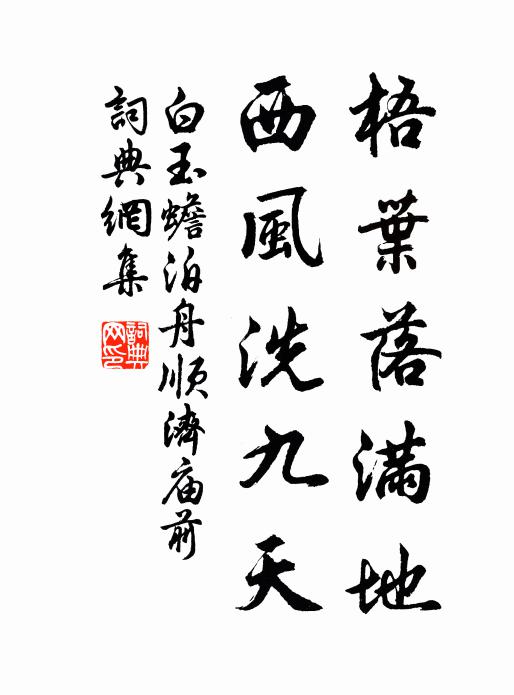 梧葉落滿地
西風洗九天
白玉蟾泊舟順濟庙前
詞典網集
詞典
网印